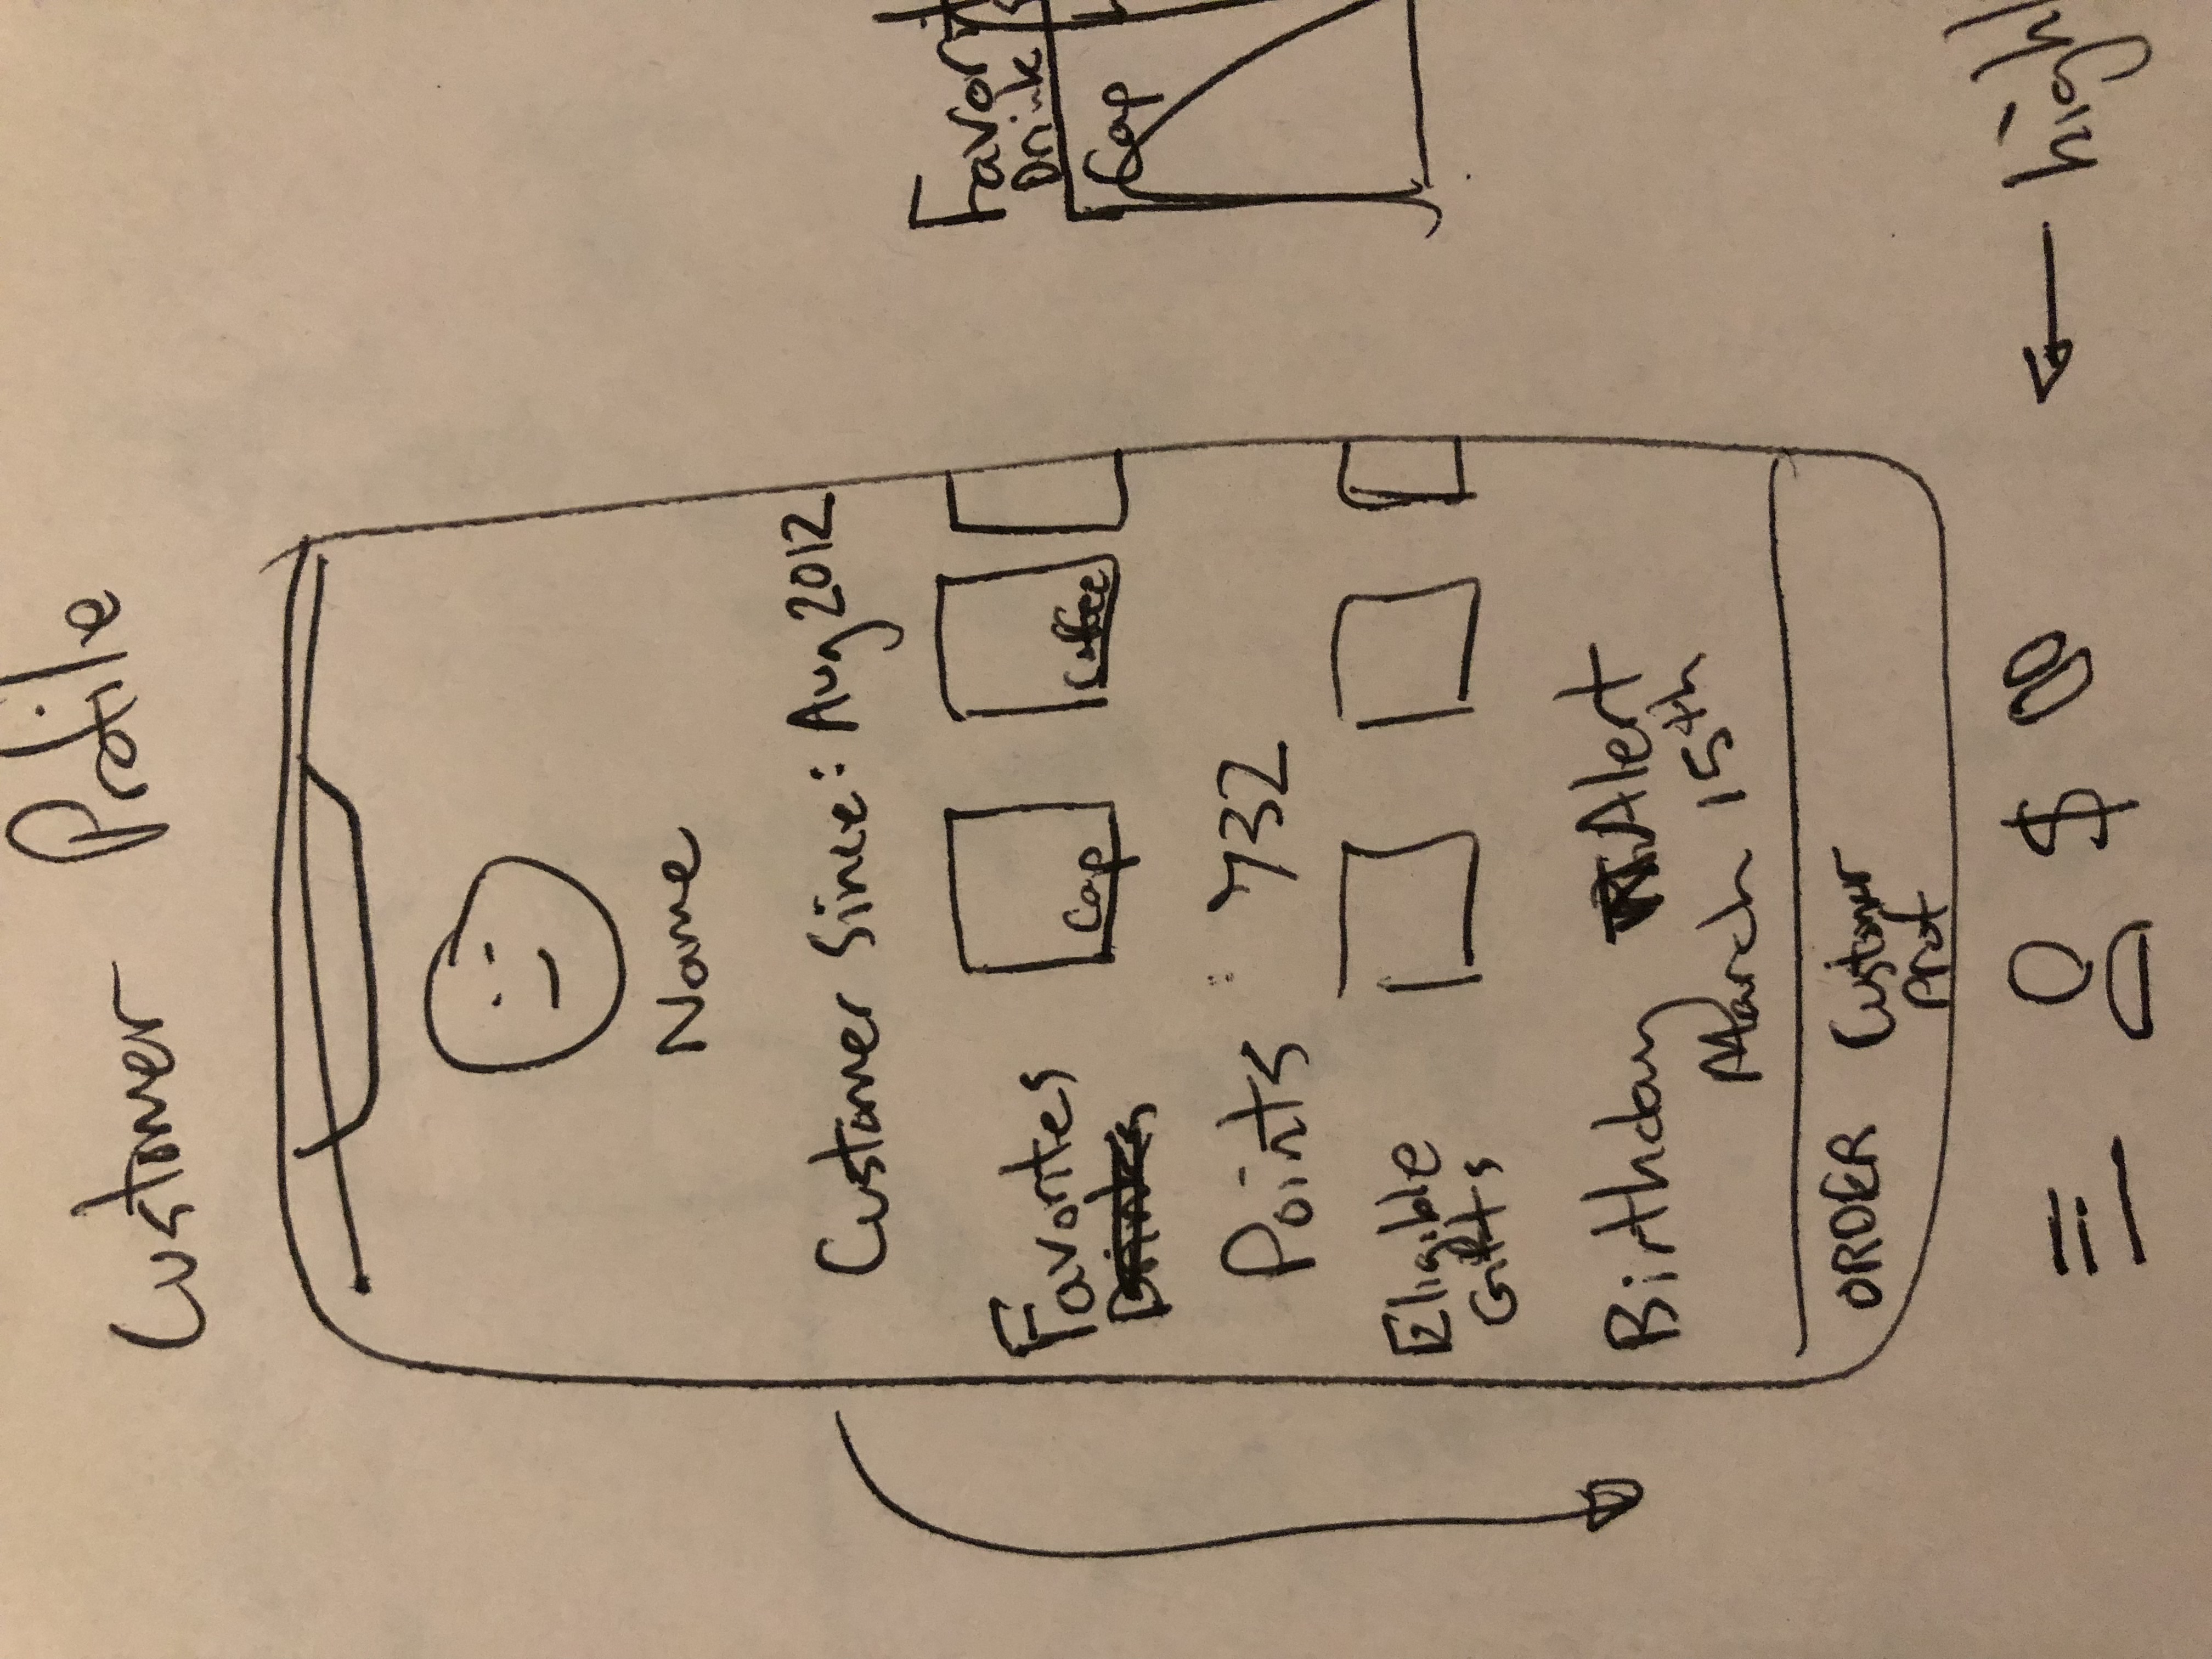 Customer Profile
Name
Customer Since: Aug 2012
Favorites
Cap
Coffee
Points : 732
Eligible
Gifts
Birthday Alert
March 15th
ORDER
Customer
$
Drink
Cap